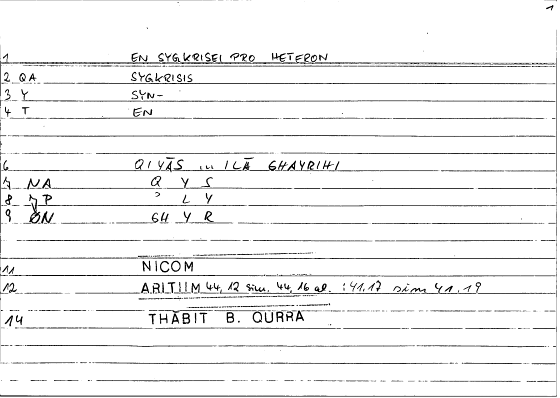 1
1 EN SYGKRISEI PRO HETERON
2 QA SYGKRISIS
3 Y SYN-
4 T EN
6 QIYĀS ... ILĀ GHAYRIHI
7 NA Q Y S
8 P ʾ L Y
9 ØN GH Y R
11 NICOM
12 ARITIIM 44, 12 sim. 44, 16 al. : 41.17 sim 41.19
14 THĀBIT B. QURRA